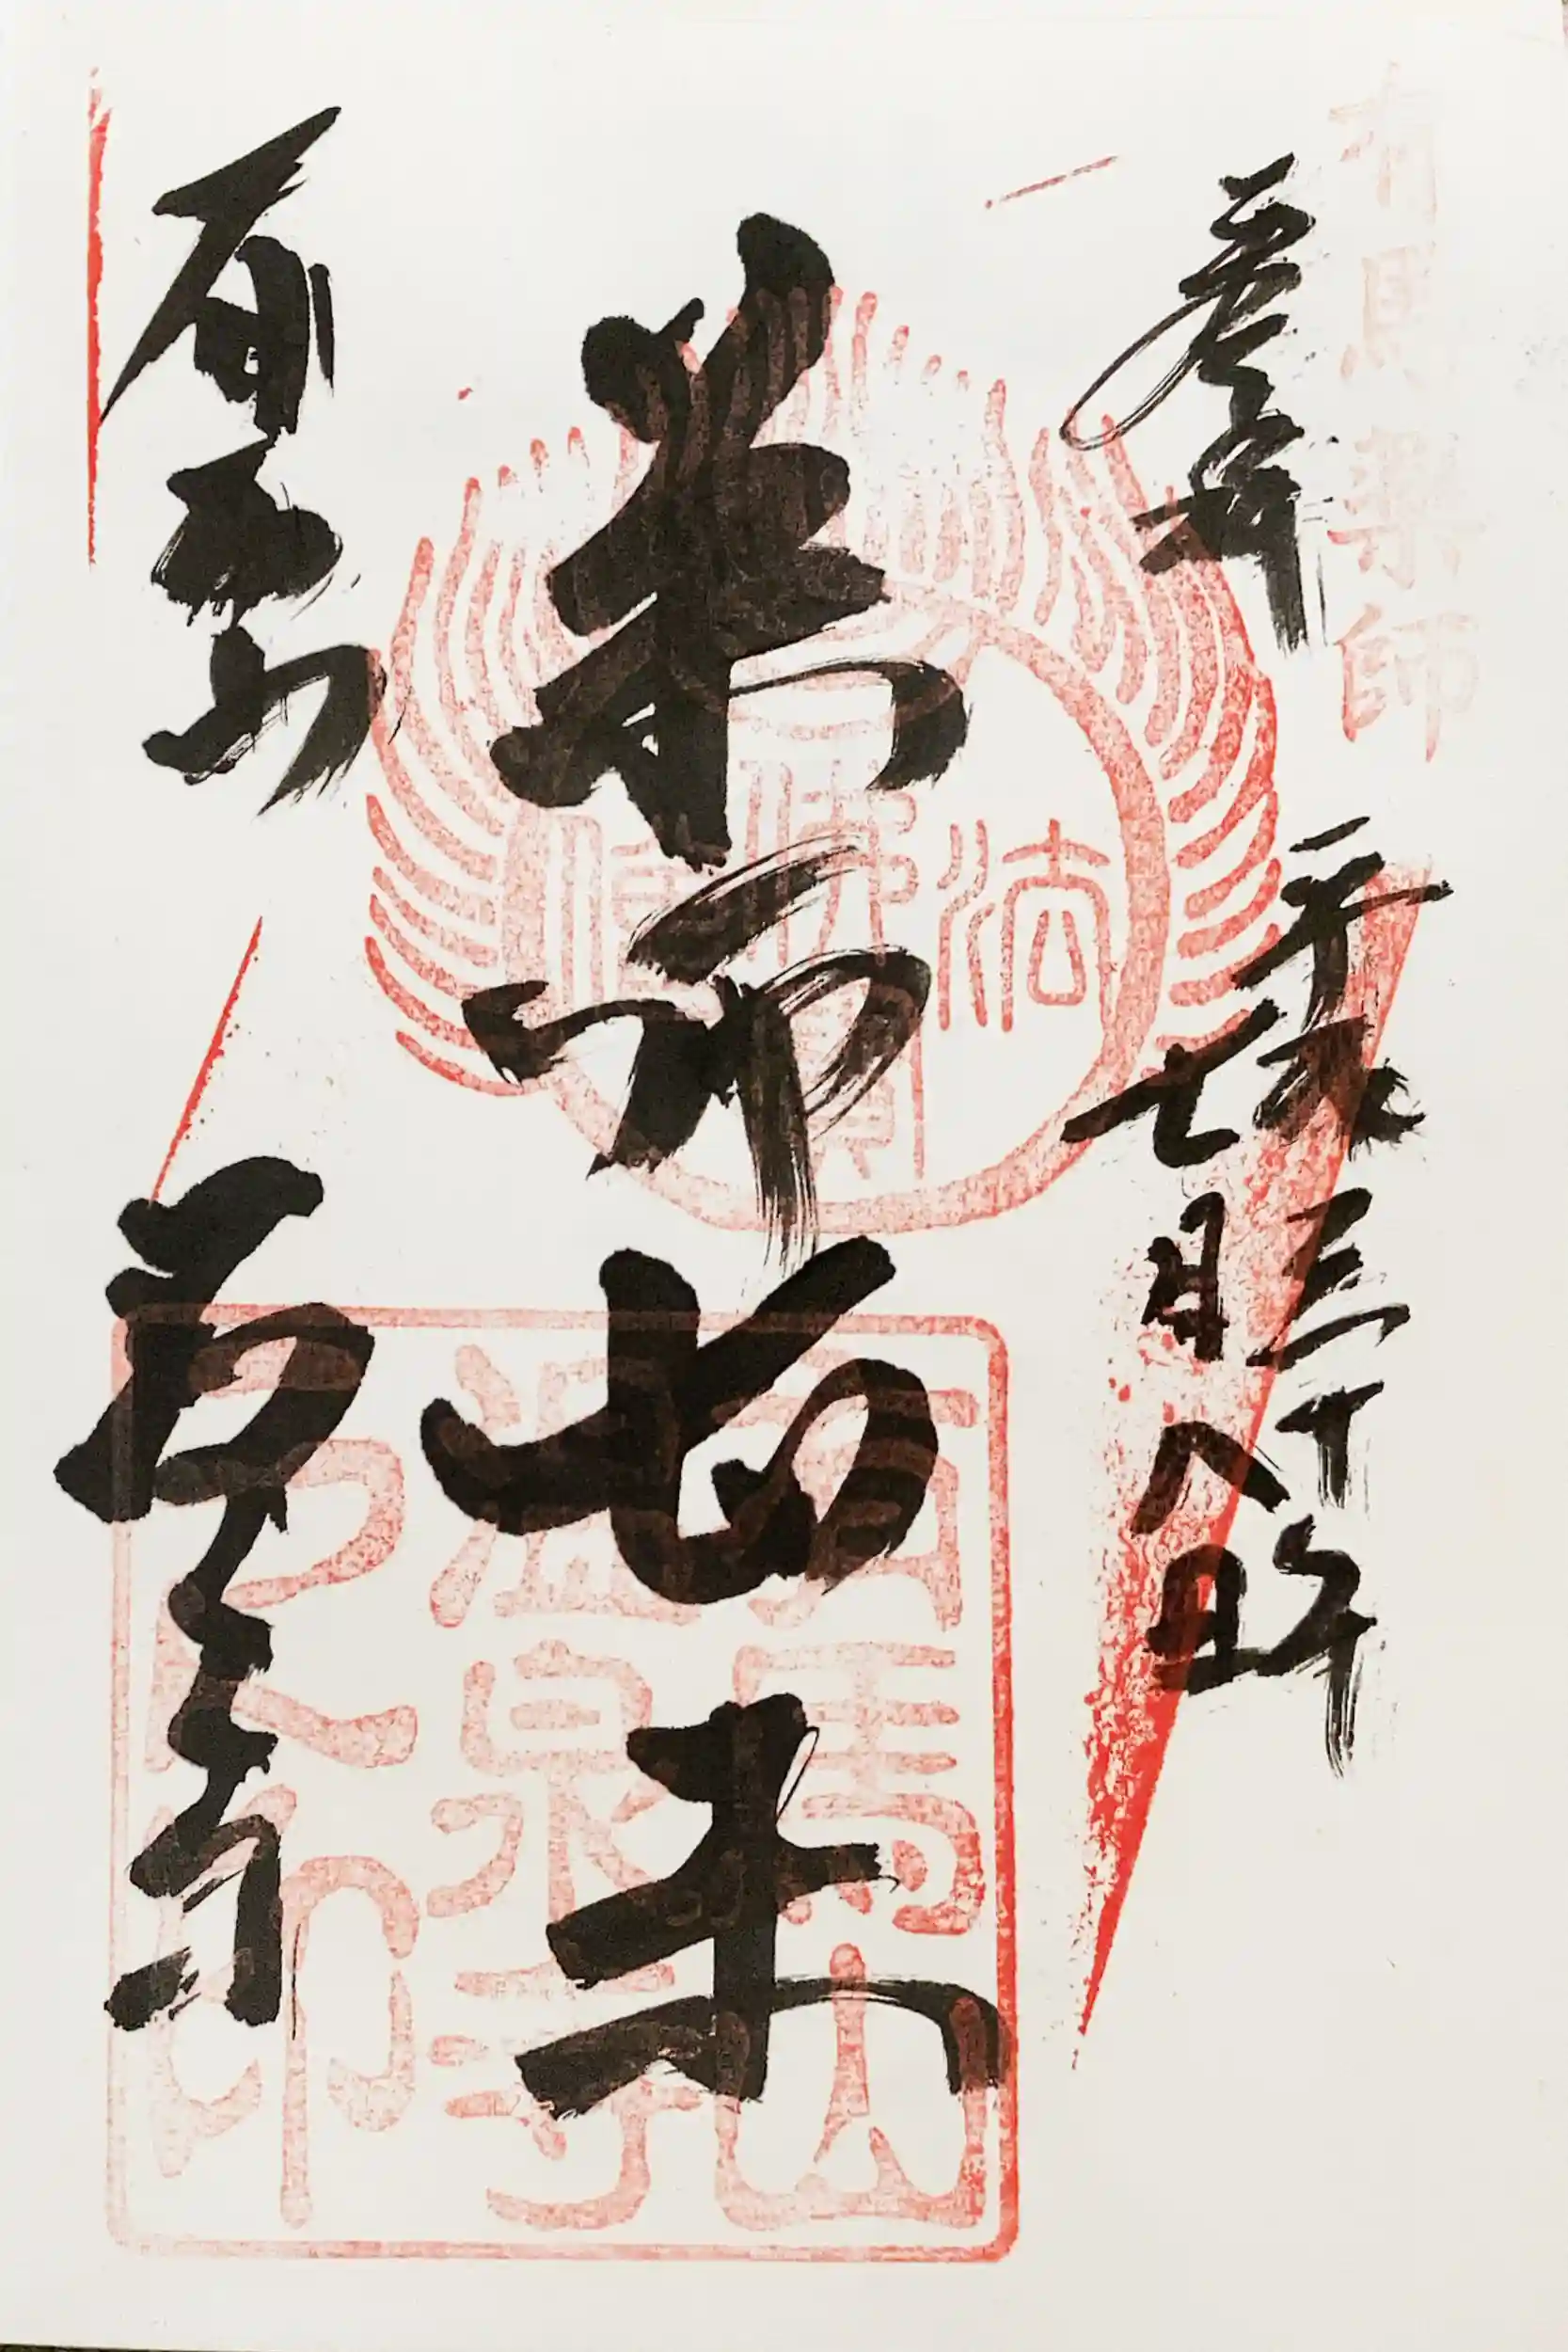 有馬薬師
奉拝
平成三十年
七月八日
薬師如来
佛
法
僧
寳
有馬山
温泉寺
之印
有馬山
温泉寺